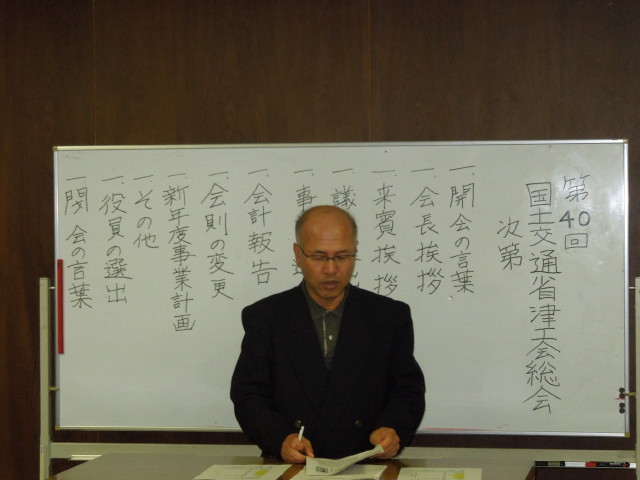 第40回
国土交通省津工会総会
次第
一、開会の言葉
一、会長挨拶
一、来賓挨拶
一、議
一、事
一、会計報告
一、会則の変更
一、新年度事業計画
一、その他
一、役員の選出
一、閉会の言葉